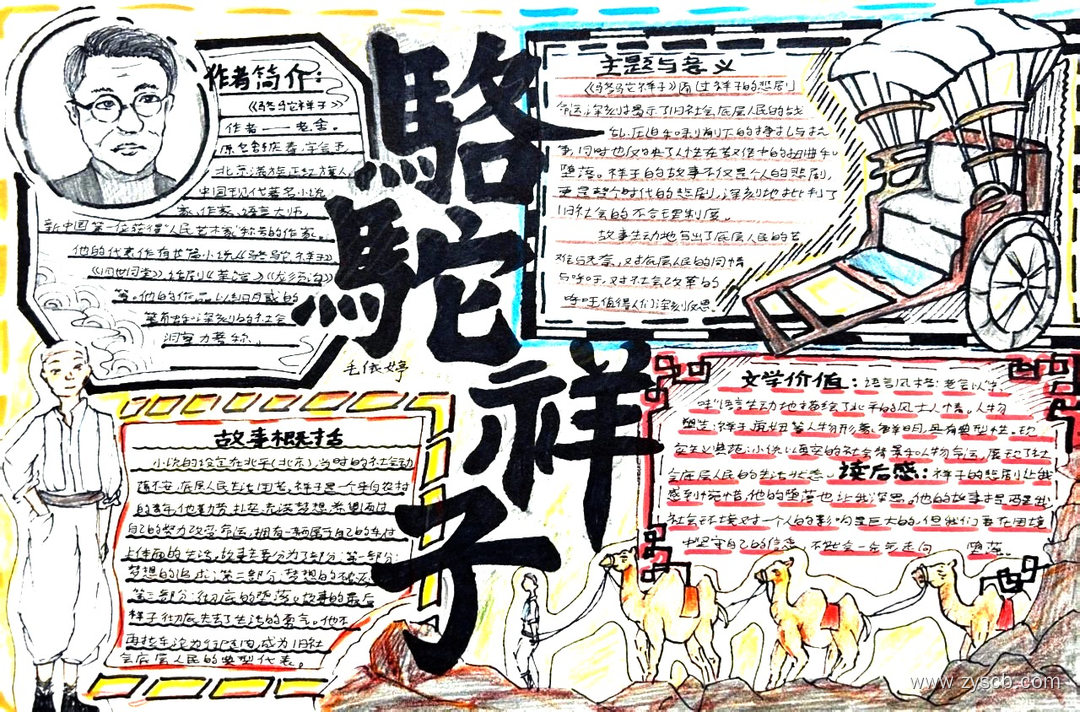 駱駝祥子
毛依婷
作者简介：
《骆驼祥子》
作者——老舍。
原名舒庆春，字舍予
北京满族正红旗人
中国现代著名小说
家，作家，语言大师，
新中国第一位获得“人民艺术家”称号的作家。
他的代表作有长篇小说《骆驼祥子》
《四世同堂》，话剧《茶馆》《龙须沟》
等。他的作品以
深刻的社会
洞察力著称。
主题与意义
《骆驼祥子》通过祥子的悲剧
命运，深刻揭示了旧社会底层人民的
压迫和剥削下的挣扎与抗
争，同时也反映了人性在苦难中的扭曲和
堕落。祥子的故事不仅是个人的悲剧，
更是整个时代的悲剧，深刻地批判了
旧社会的不合理制度。
故事生动地写出了底层人民的苦
难与无奈，对底层人民的同情
与呼吁，对社会改革的
呼吁值得人们深刻反思。
故事概括
小说的设定在北平（北京），当时的社会动
荡不安，底层人民生活困苦。祥子是一个来自农村
的青年，他勤劳、扎实、充满梦想，希望通过
自己的努力改变命运，拥有一辆属于自己的车，过
上体面的生活。故事主要分为了三部分：第一部分：
梦想的追求；第二部分：梦想的破灭
第三部分：彻底的堕落。故事的最后
祥子彻底失去了生活的勇气。他不
再把车论为行尸走肉，成为旧社
会底层人民的典型代表。
文学价值：语言风格：老舍以生
味语言生动地描绘了北平的风土人情。人物
塑造：祥子、虎妞等人物形象鲜明，具有典型性。现
实主义典范：小说以真实的社会背景和人物命运，展现了社
会底层人民的生活状态。读后感：祥子的悲剧让我
感到惋惜，他的堕落也让我深思。他的故事提醒我
社会环境对一个人的影响是巨大的，但我们要在困境
中坚守自己的信念，不能会一会走向堕落。
www.zyscb.com